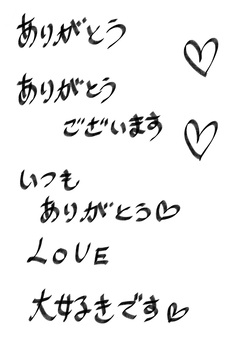 ありがとう ♡
ありがとう
ございます ♡
いつも
ありがとう♡
LOVE
大好きです♡